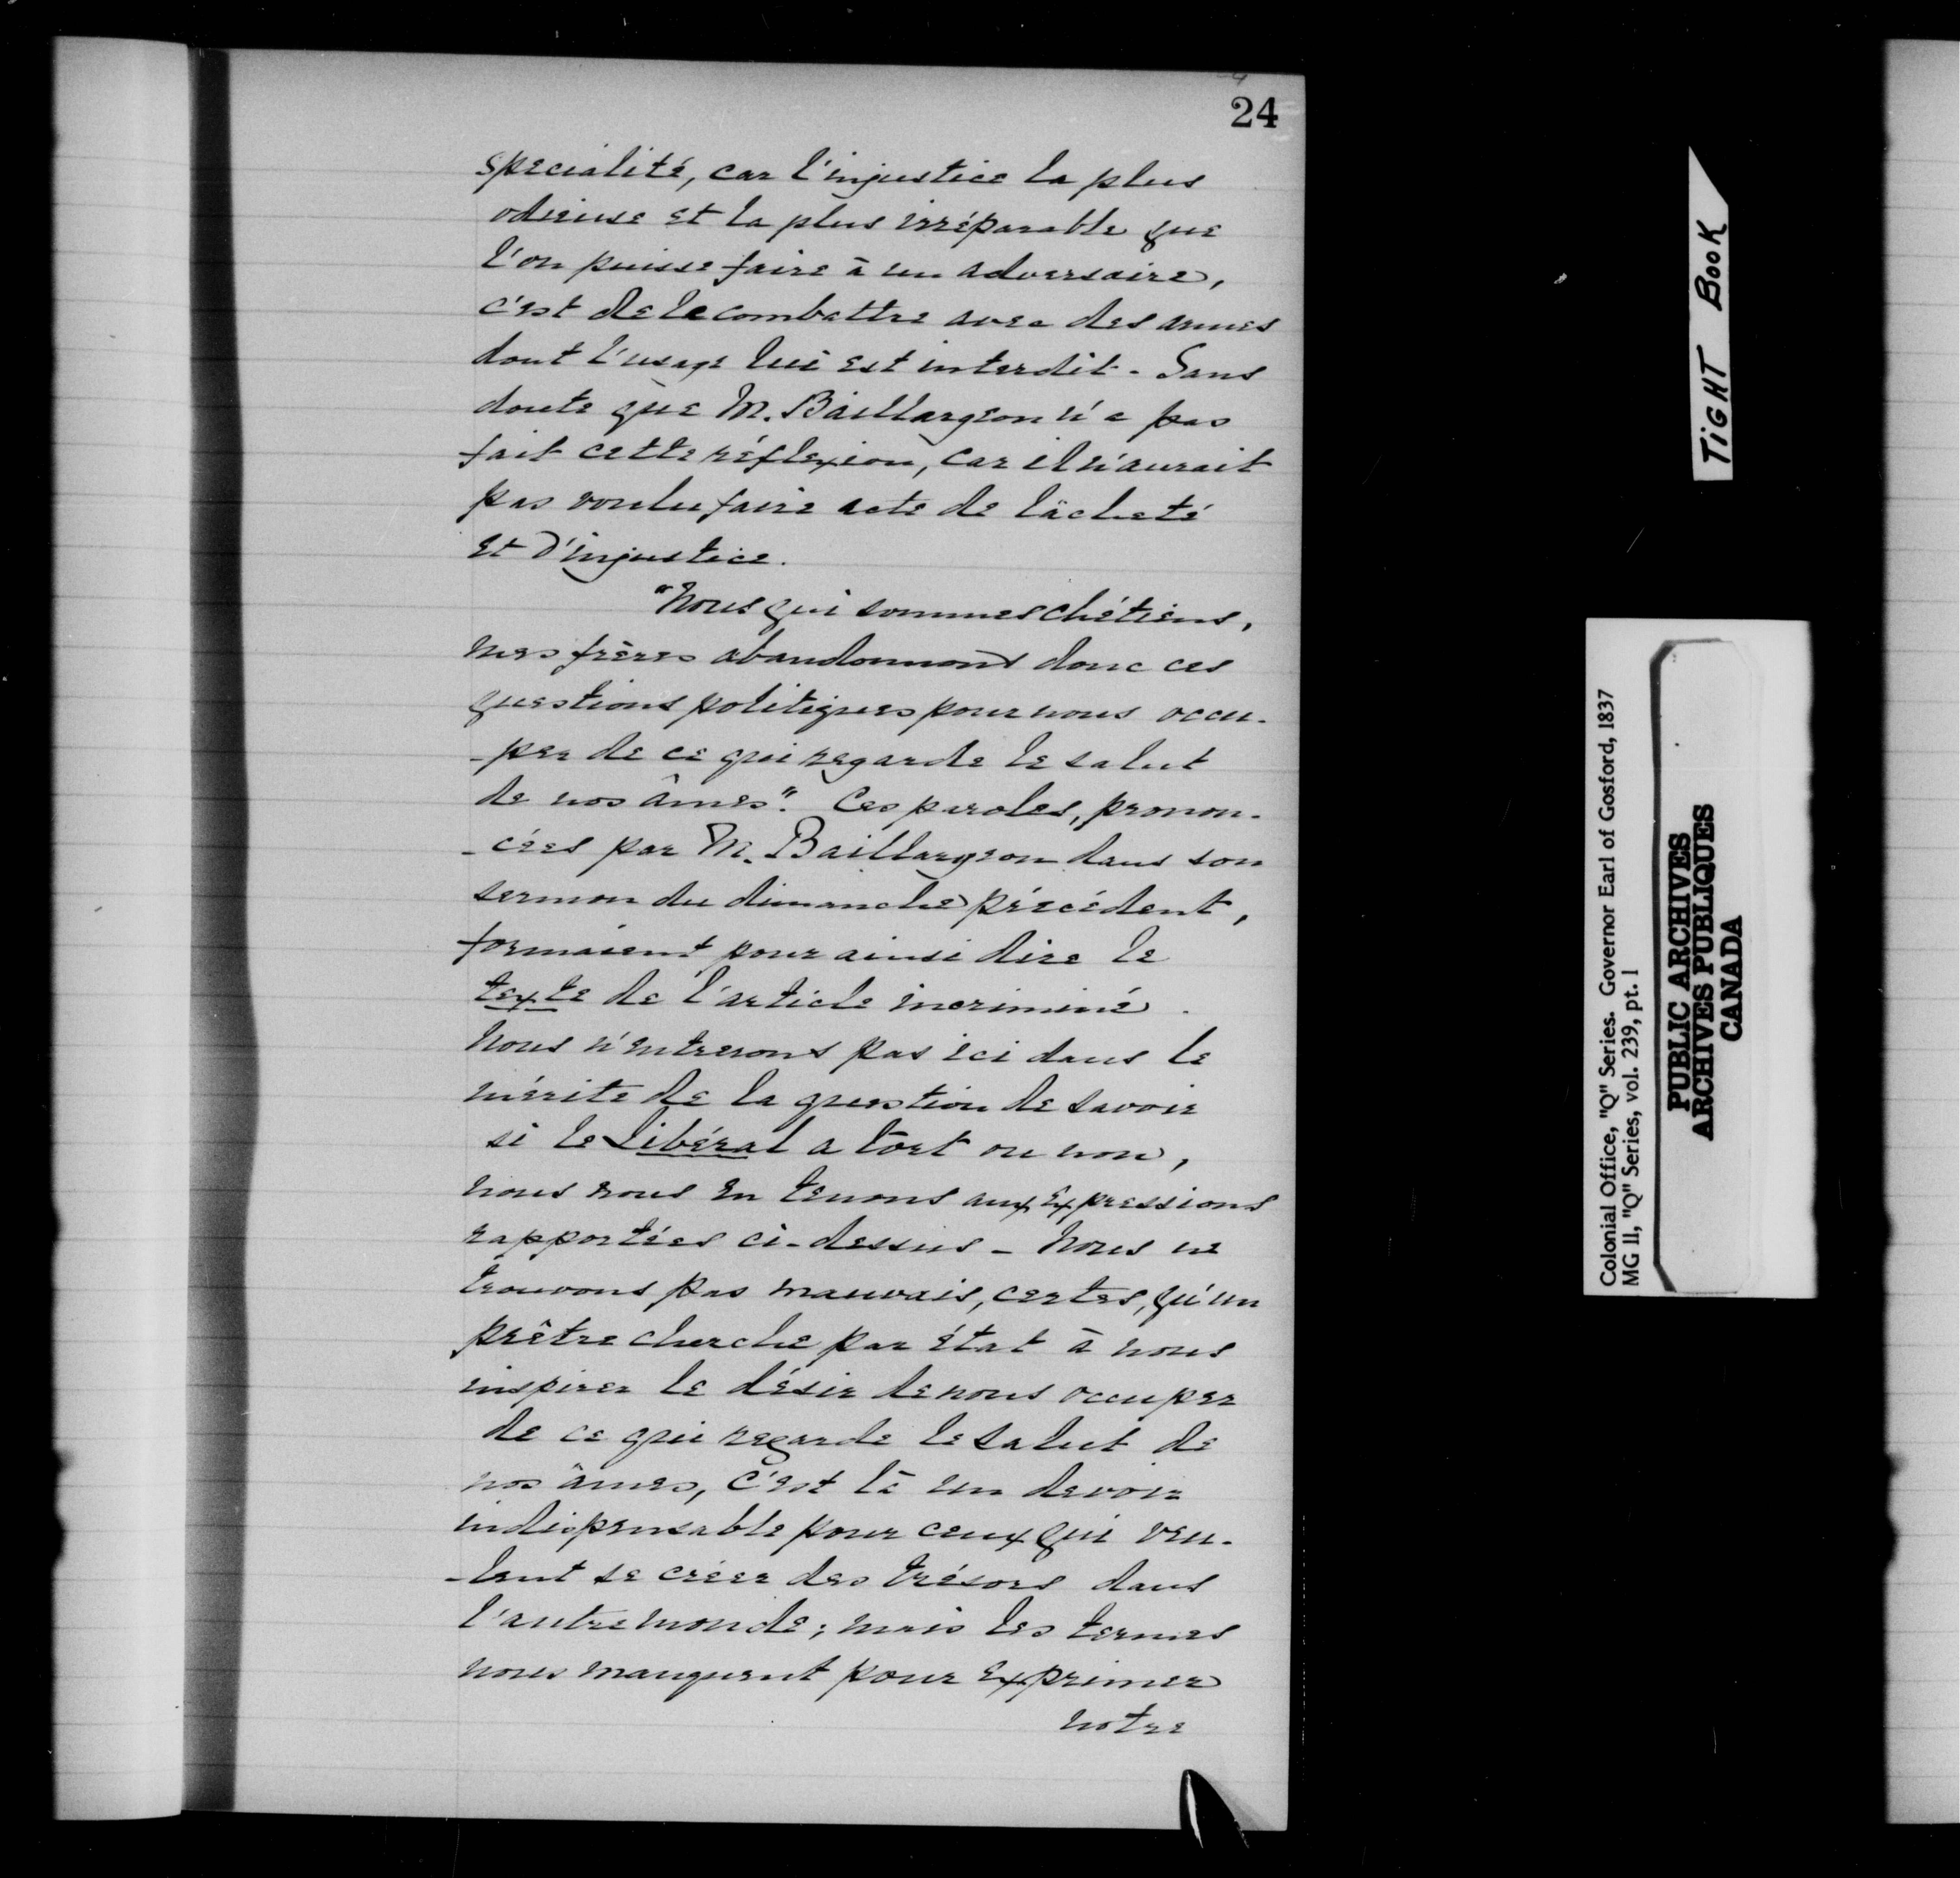 24
spécialité, car l'injustice la plus
odieuse et la plus irréparable que
l'on puisse faire à un adversaire,
c'est de le combattre avec des armes
dont l'usage lui est interdit. Sans
doute que M. Baillargeon n'a pas
fait cette réflexion, car il n'aurait
pas voulu faire acte de lâcheté
et d'injustice.
"Nous qui sommes chétiens,
mes frères abandonnons donc ces
questions politiques pour nous occu-
-per de ce qui regarde le salut
de nos âmes". Ces paroles, pronon-
-cées par M. Baillargeon dans son
sermon du dimanche précédent,
formaient pour ainsi dire le
texte de l'article incriminé.
Nous n'entrerons pas ici dans le
mérite de la question de savoir
si le Libéral a tort ou non,
nous nous en tenons aux expressions
rapportées ci-dessus - Nous ne
trouvons pas mauvais, certes, qu'un
prêtre cherche par état à nous
inspirer le désir de nous occuper
de ce qui regarde le salut de
nos âmes, c'est là un devoir
indispensable pour ceux qui veu-
-lent se créer des trésors dans
l'autre monde; mais les termes
nous manquent pour exprimer
notre
TIGHT BOOK
Colonial Office, "Q" Series. Governor Earl of Gosford, 1837
MG 11, "Q" Series, vol. 239, pt. 1
PUBLIC ARCHIVES
ARCHIVES PUBLIQUES
CANADA